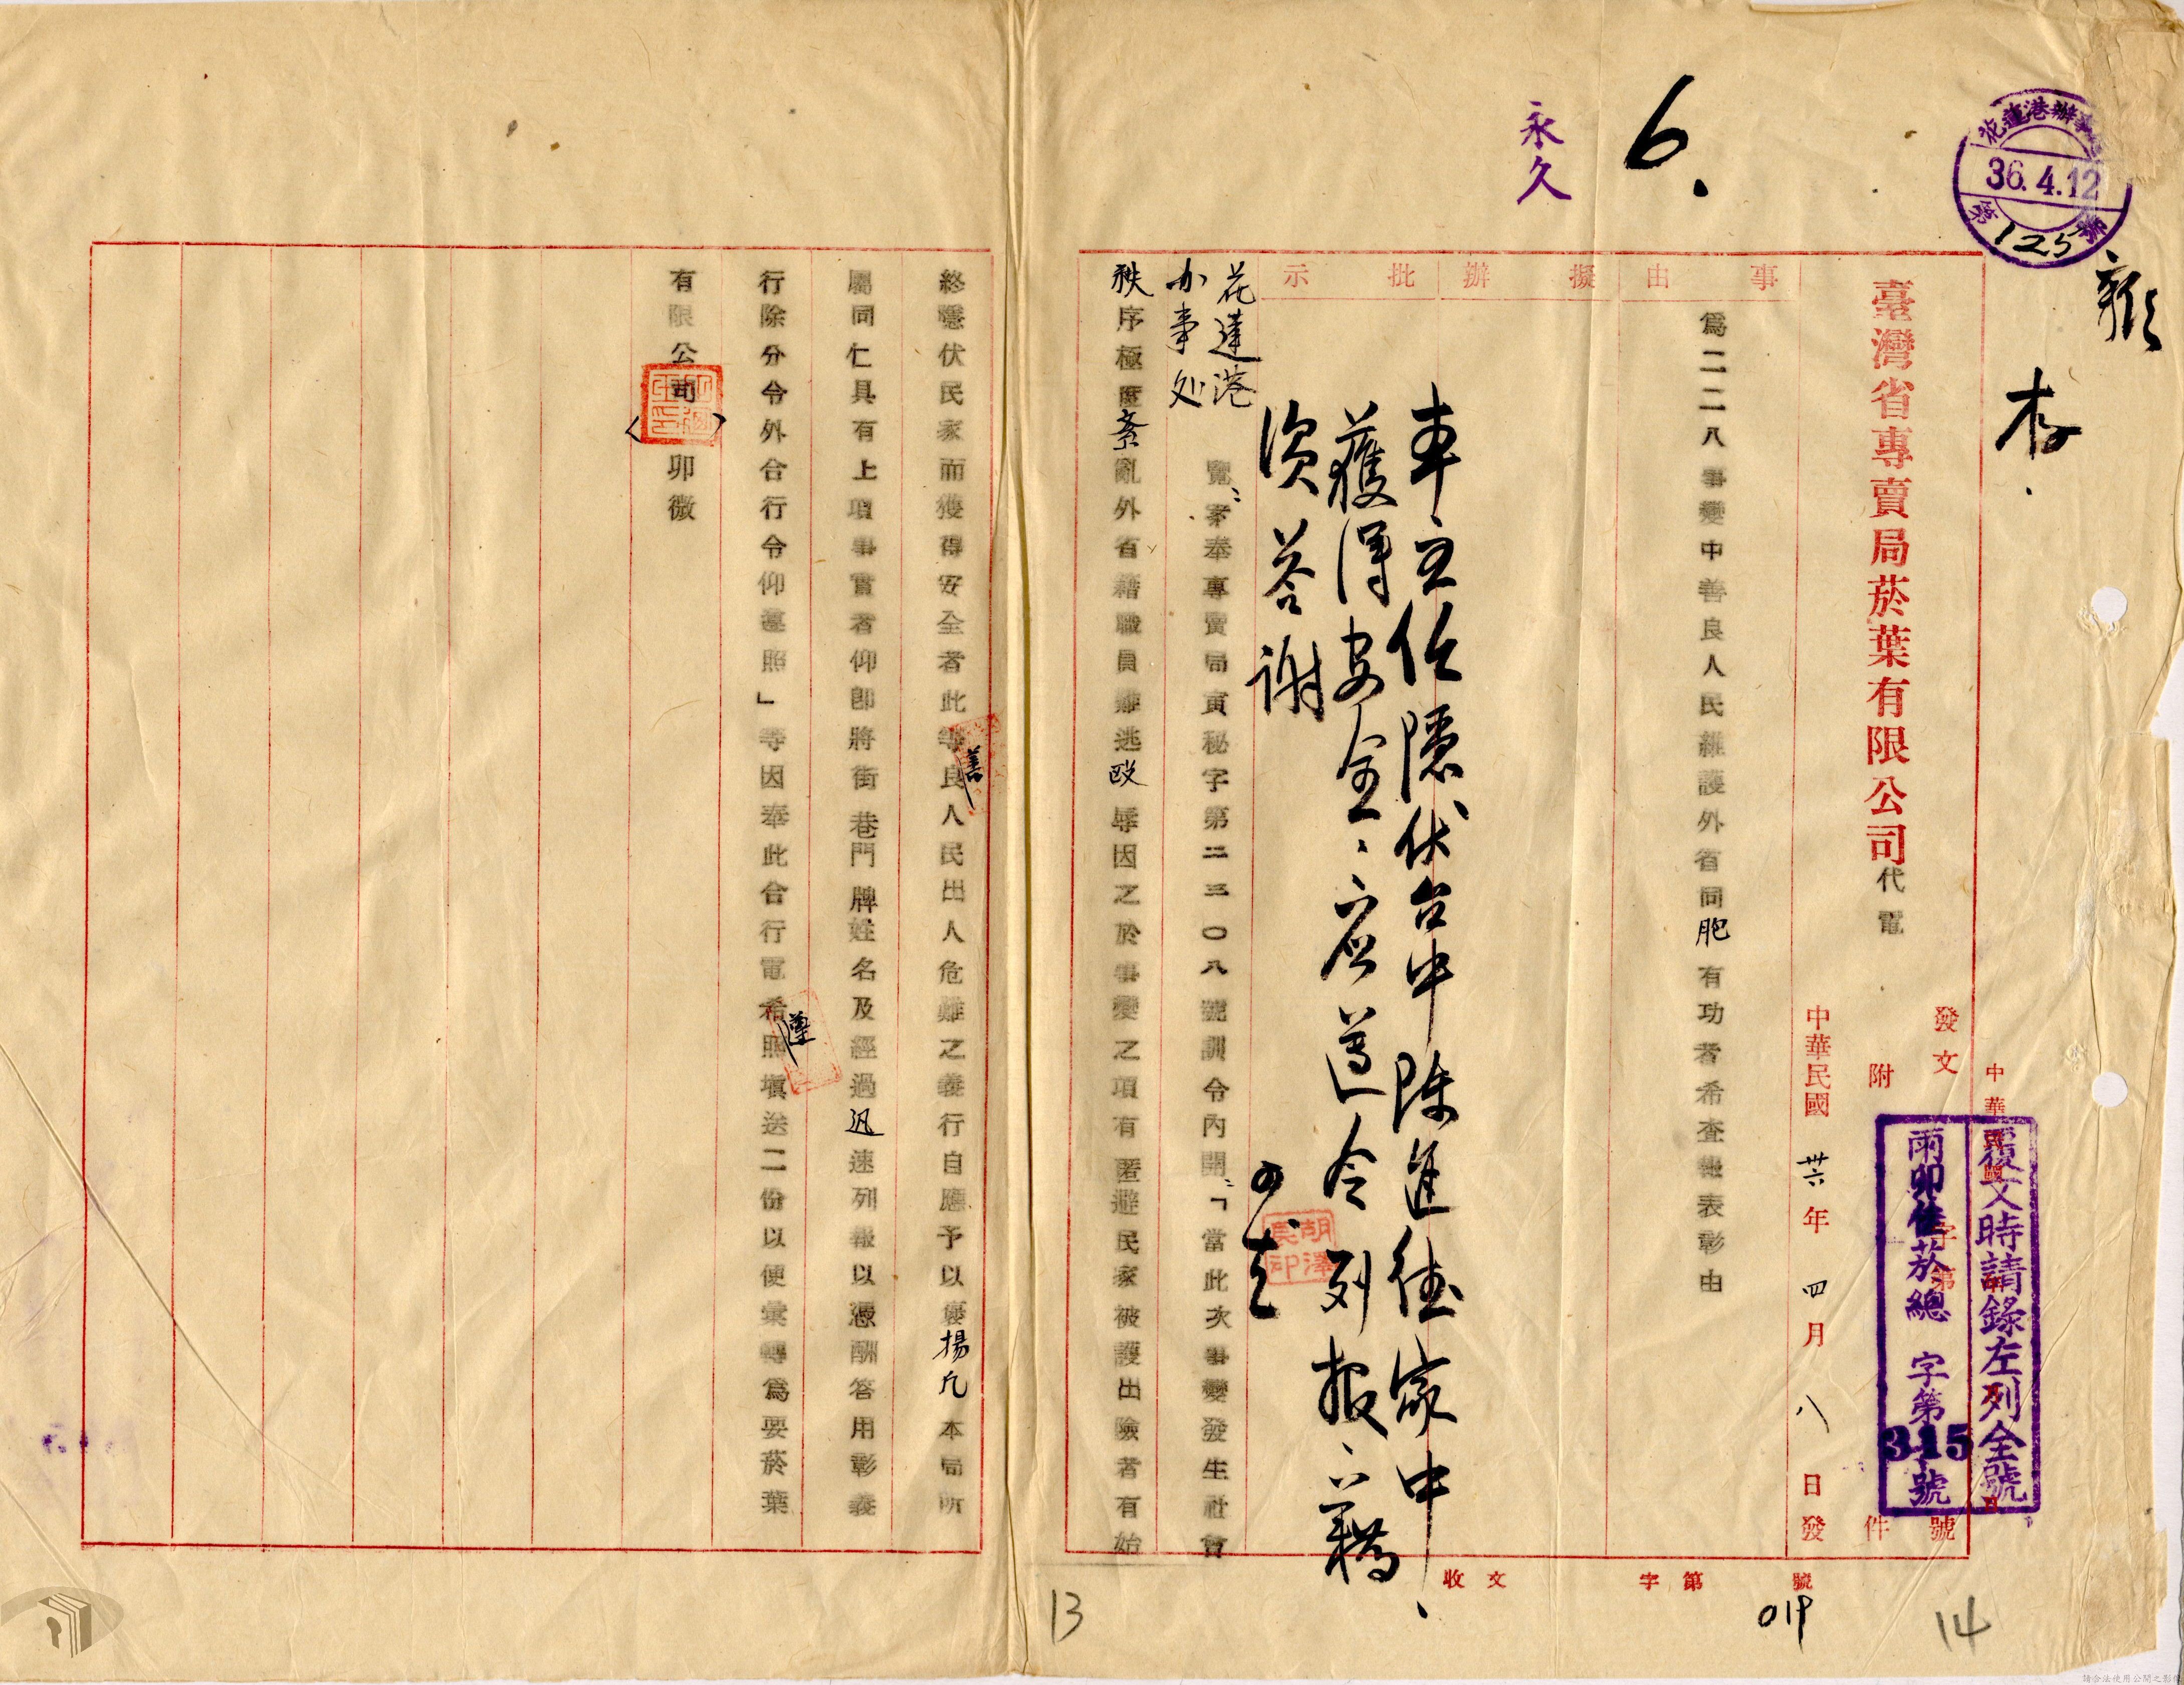 花蓮港辦事
36.4.12
第125號
永久
6.
存.
臺灣省專賣局菸葉有限公司代電
發文 字第 號
附 件
中華民國卅六年四月八日發
覆文時請錄左列全號
兩卯佳菸總 字第315號
事由
擬辦
批示
為二二八事變中善良人民維護外省同胞有功者希查報表彰由
車主任隱伏台中陳進德家中、
獲得安全、應遵令列報、以藉
資答謝
胡澤長印
花蓮港
办事处
覽:案奉專賣局寅秘字第二三〇八號訓令內開:「當此次事變發生社會
秩序極度紊亂外省籍職員難逃毆辱因之於事變之項有匿避民家被護出險者有始
終隱伏民家而獲得安全者此等善良人民出人危難之義行自應予以褒揚凡本局所
屬同仁具有上項事實者仰即將街巷門牌姓名及經過迅速列報以憑酬答用彰義
行除分令外合行令仰遵照」等因奉此合行電希遵照填送二份以便彙轉為要菸葉
有限公司（ ）卯微
收文 字第 號
019
13
14
請合法使用公開之影像